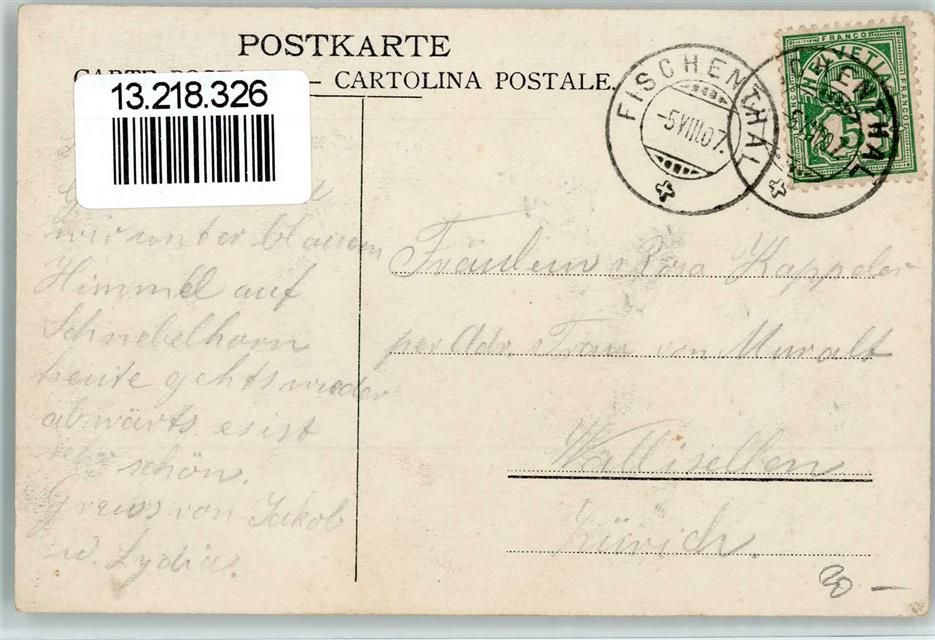 POSTKARTE
— CARTOLINA POSTALE.
13.218.326
FISCHENTHAL
-5.VIII.07.
FRANCO
HELVETIA
FRANCO
5
wir unter blauem
Himmel auf
Schnebelhorn
heute gehts wieder
abwärts es ist
sehr schön.
Gruss von Jakob
u. Lydia.
Fräulein Rosa Kappeler
per Adr. Frau von Muralt
Wallisellen
Zürich.
20 —